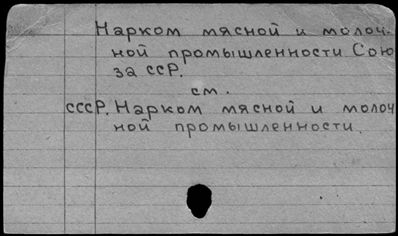 Нарком мясной и молоч-
ной промышленности Сою
за ССР.
см.
СССР. Нарком мясной и молоч
ной промышленности.